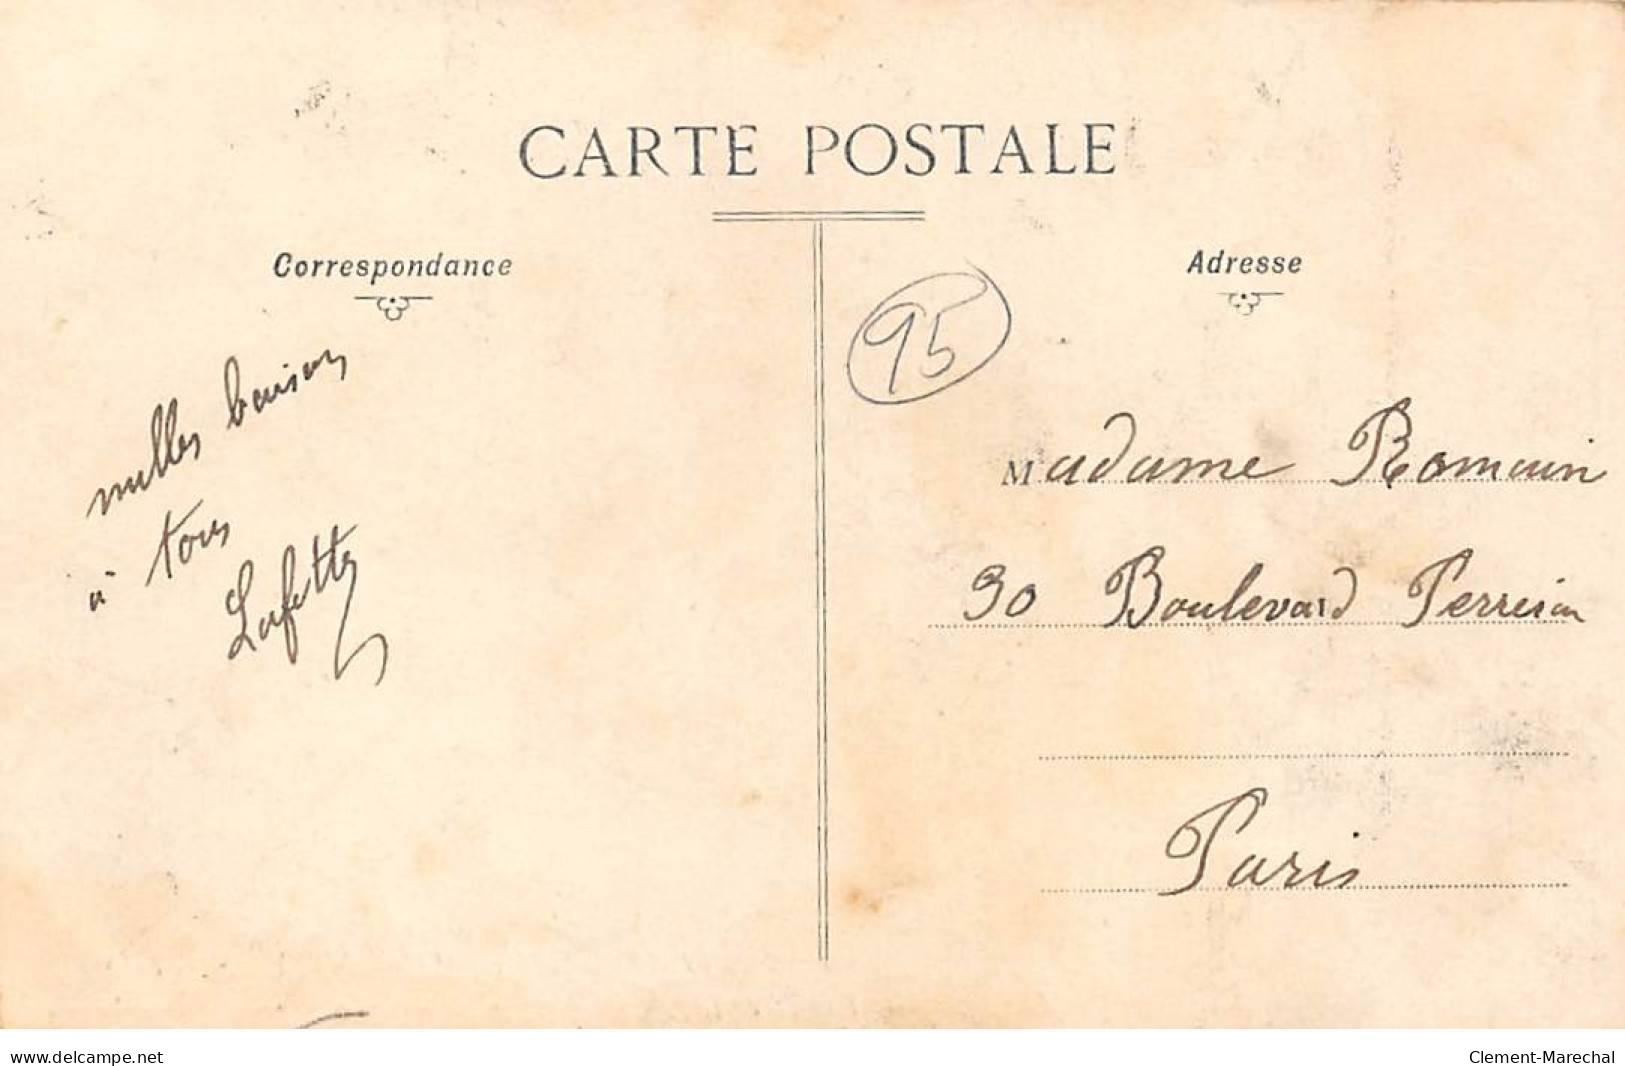 CARTE POSTALE
Correspondance
Adresse
95
milles baisers
à tous
Madame Romain
30 Boulevard
Paris
www.delcampe.net
Clement-Marechal